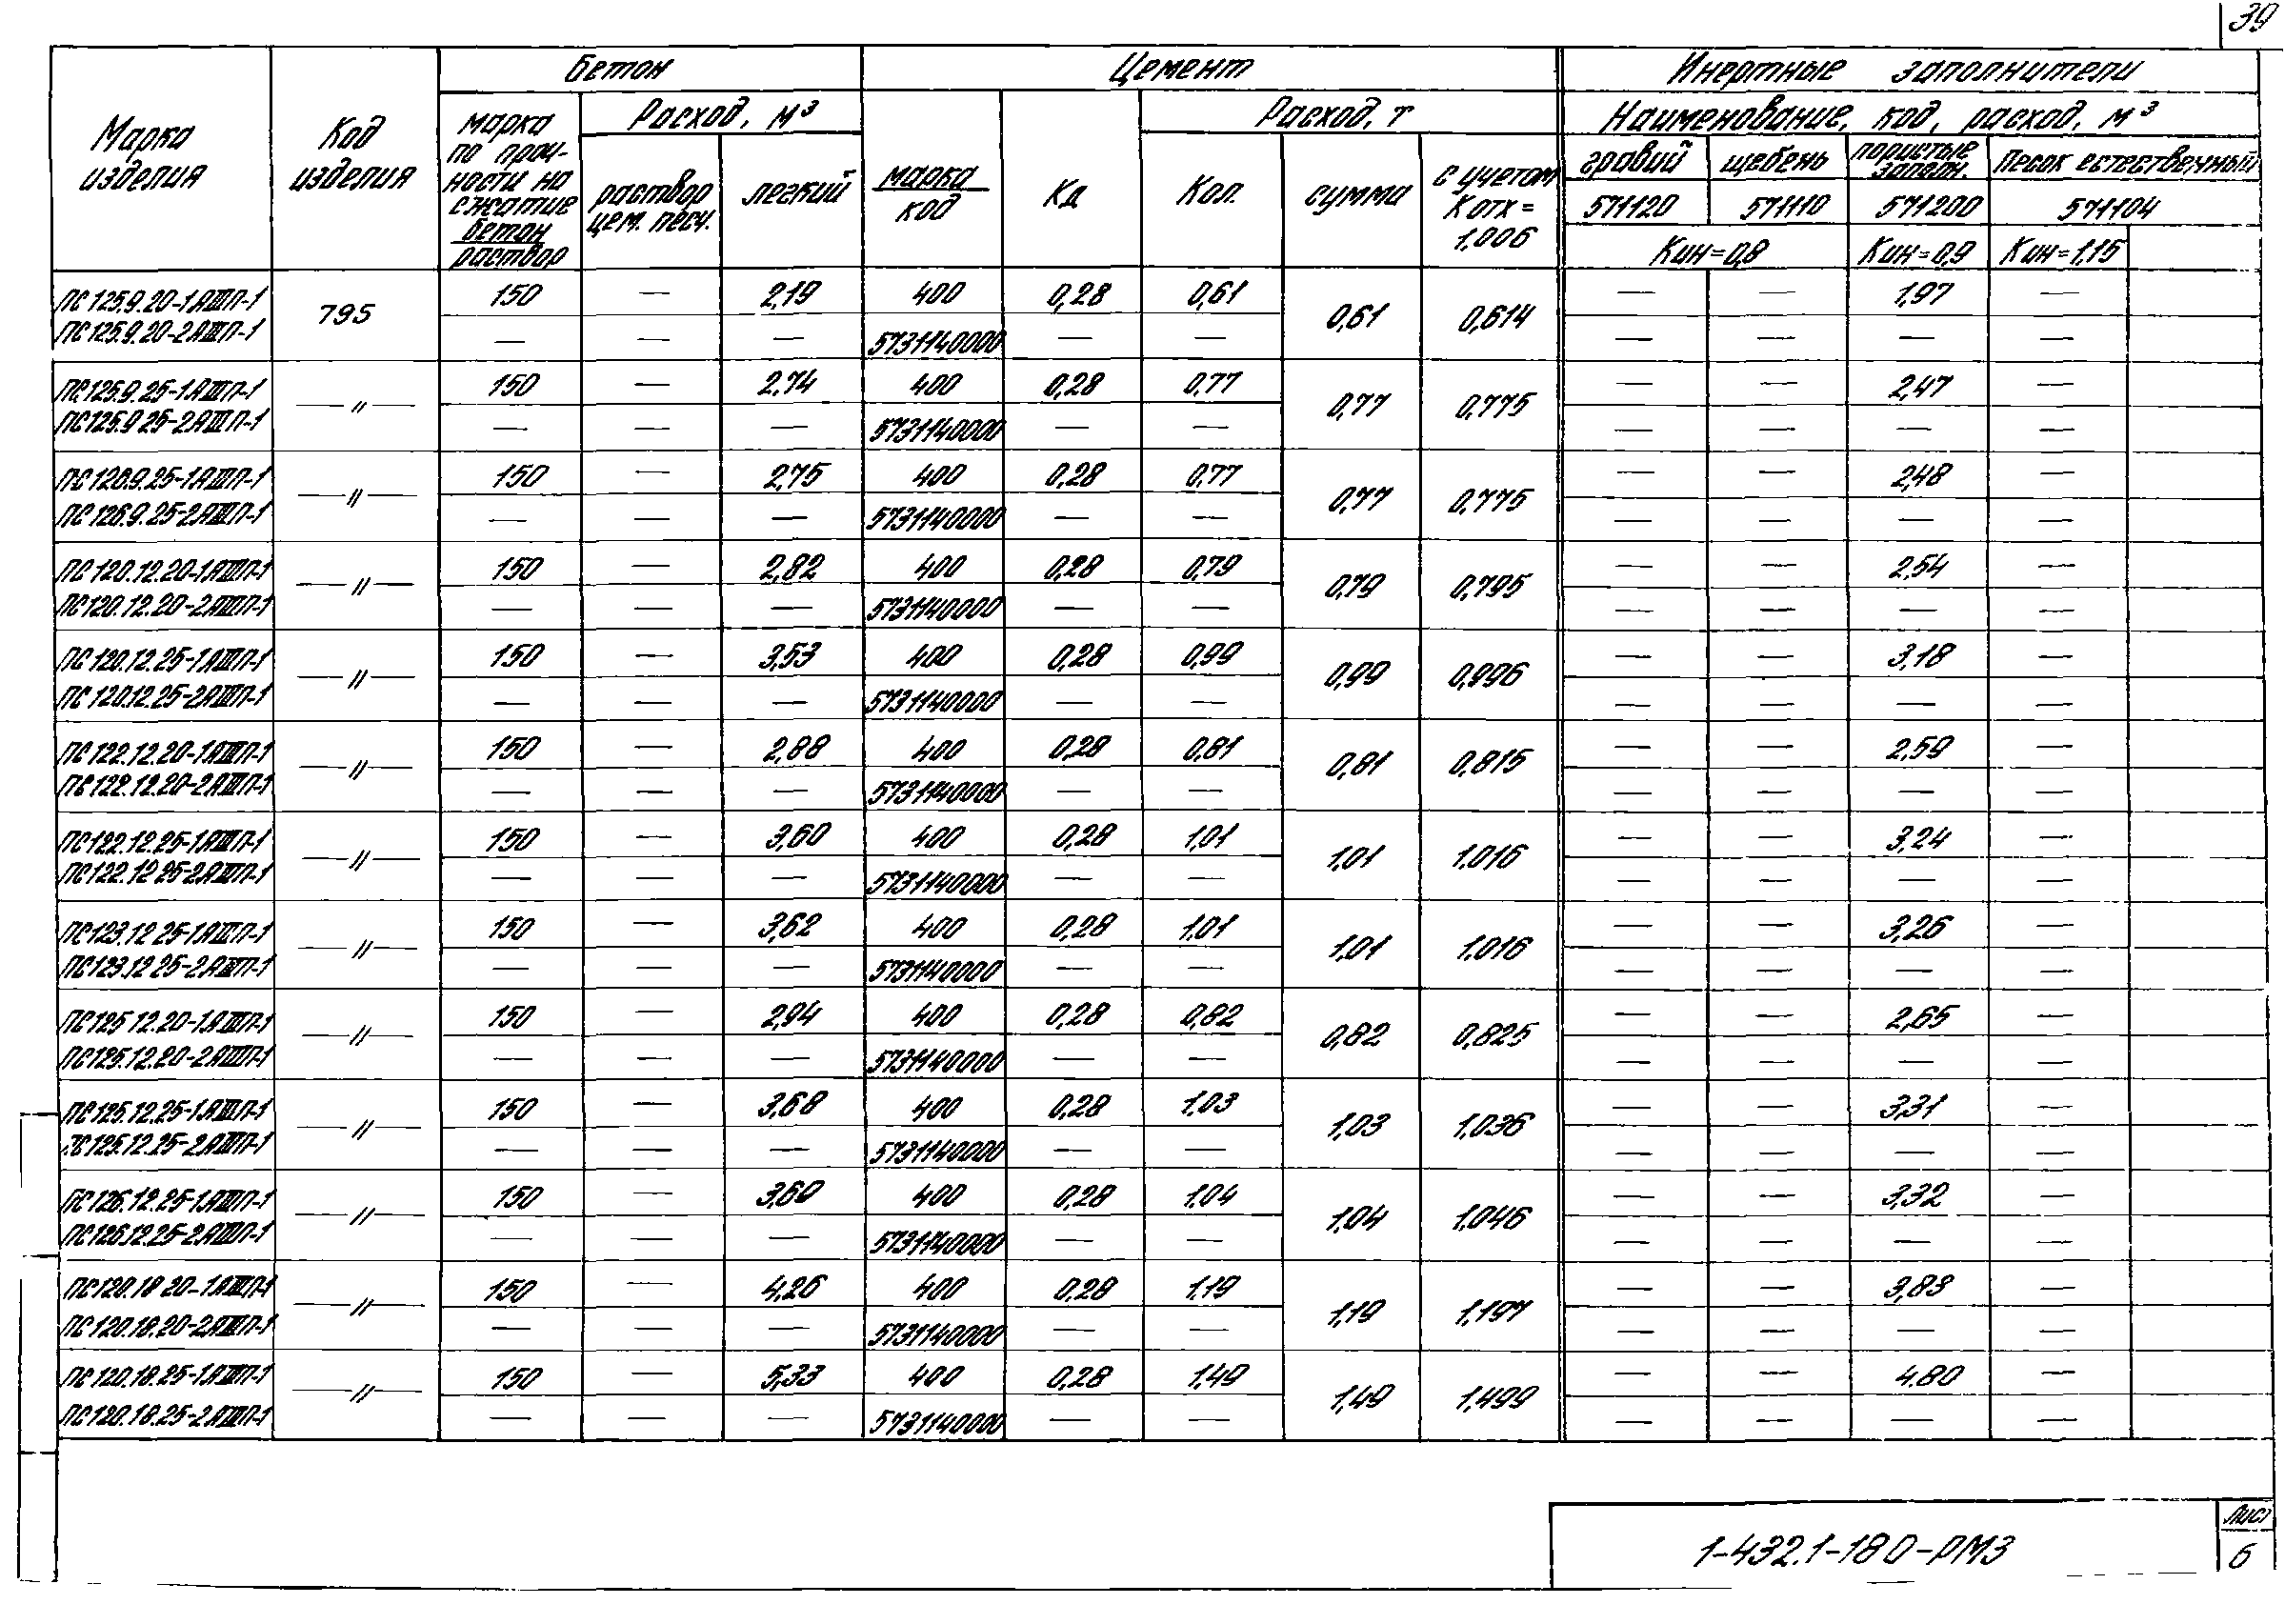 39
Бетон Цемент Инертные заполнители
Марка изделия
Код изделия
марка по проч-ности на сжатие бетон раствор
Расход, м³
раствор цем. песч.
легкий
марка код
Кд
Расход, т
Кол.
сумма
с учетом Котх = 1.006
Наименование, код, расход, м³
гравий щебень пористые заполн. Песок естественный
571120 571110 571200 571104
Кин=0,8 Кин=0,9 Кин=1,15
ПС125.9.20-1АШП-1 795 150 — 2,19 400 0,28 0,61 0,61 0,614 — — 1,97 —
ПС125.9.20-2АШП-1 — — — 5731140000 — — — — — —
ПС125.9.25-1АШП-1 —〃— 150 — 2,74 400 0,28 0,77 0,77 0,775 — — 2,47 —
ПС125.9.25-2АШП-1 — — — 5731140000 — — — — — —
ПС126.9.25-1АШП-1 —〃— 150 — 2,75 400 0,28 0,77 0,77 0,775 — — 2,48 —
ПС126.9.25-2АШП-1 — — — 5731140000 — — — — — —
ПС120.12.20-1АШП-1 —〃— 150 — 2,82 400 0,28 0,79 0,79 0,795 — — 2,54 —
ПС120.12.20-2АШП-1 — — — 5731140000 — — — — — —
ПС120.12.25-1АШП-1 —〃— 150 — 3,53 400 0,28 0,99 0,99 0,996 — — 3,18 —
ПС120.12.25-2АШП-1 — — — 5731140000 — — — — — —
ПС122.12.20-1АШП-1 —〃— 150 — 2,88 400 0,28 0,81 0,81 0,815 — — 2,59 —
ПС122.12.20-2АШП-1 — — — 5731140000 — — — — — —
ПС122.12.25-1АШП-1 —〃— 150 — 3,60 400 0,28 1,01 1,01 1,016 — — 3,24 —
ПС122.12.25-2АШП-1 — — — 5731140000 — — — — — —
ПС123.12.25-1АШП-1 —〃— 150 — 3,62 400 0,28 1,01 1,01 1,016 — — 3,26 —
ПС123.12.25-2АШП-1 — — — 5731140000 — — — — — —
ПС125.12.20-1АШП-1 —〃— 150 — 2,94 400 0,28 0,82 0,82 0,825 — — 2,65 —
ПС125.12.20-2АШП-1 — — — 5731140000 — — — — — —
ПС125.12.25-1АШП-1 —〃— 150 — 3,68 400 0,28 1,03 1,03 1,036 — — 3,31 —
ПС125.12.25-2АШП-1 — — — 5731140000 — — — — — —
ПС126.12.25-1АШП-1 —〃— 150 — 3,69 400 0,28 1,04 1,04 1,046 — — 3,32 —
ПС126.12.25-2АШП-1 — — — 5731140000 — — — — — —
ПС120.18.20-1АШП-1 —〃— 150 — 4,26 400 0,28 1,19 1,19 1,197 — — 3,83 —
ПС120.18.20-2АШП-1 — — — 5731140000 — — — — — —
ПС120.18.25-1АШП-1 —〃— 150 — 5,33 400 0,28 1,49 1,49 1,499 — — 4.80 —
ПС120.18.25-2АШП-1 — — — 5731140000 — — — — — —
1-432.1-18 0-РМ3
Лист
6